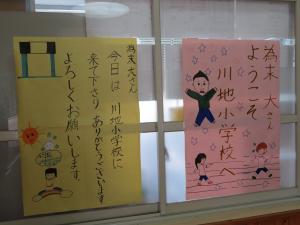 為末 大さん
今日は 川地小学校に
来て下さり ありがとうございます
よろしくお願いします。
為末 大さん
ようこそ
川地小学校へ